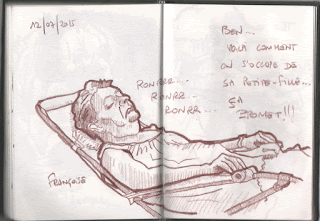 12/07/2015
BEN...
VOILÀ COMMENT
ON S'OCCUPE DE
SA PETITE-FILLE...
ÇA
PROMET!!!
RONRRR...
RONRR...
RONRR...
FRANÇOISE